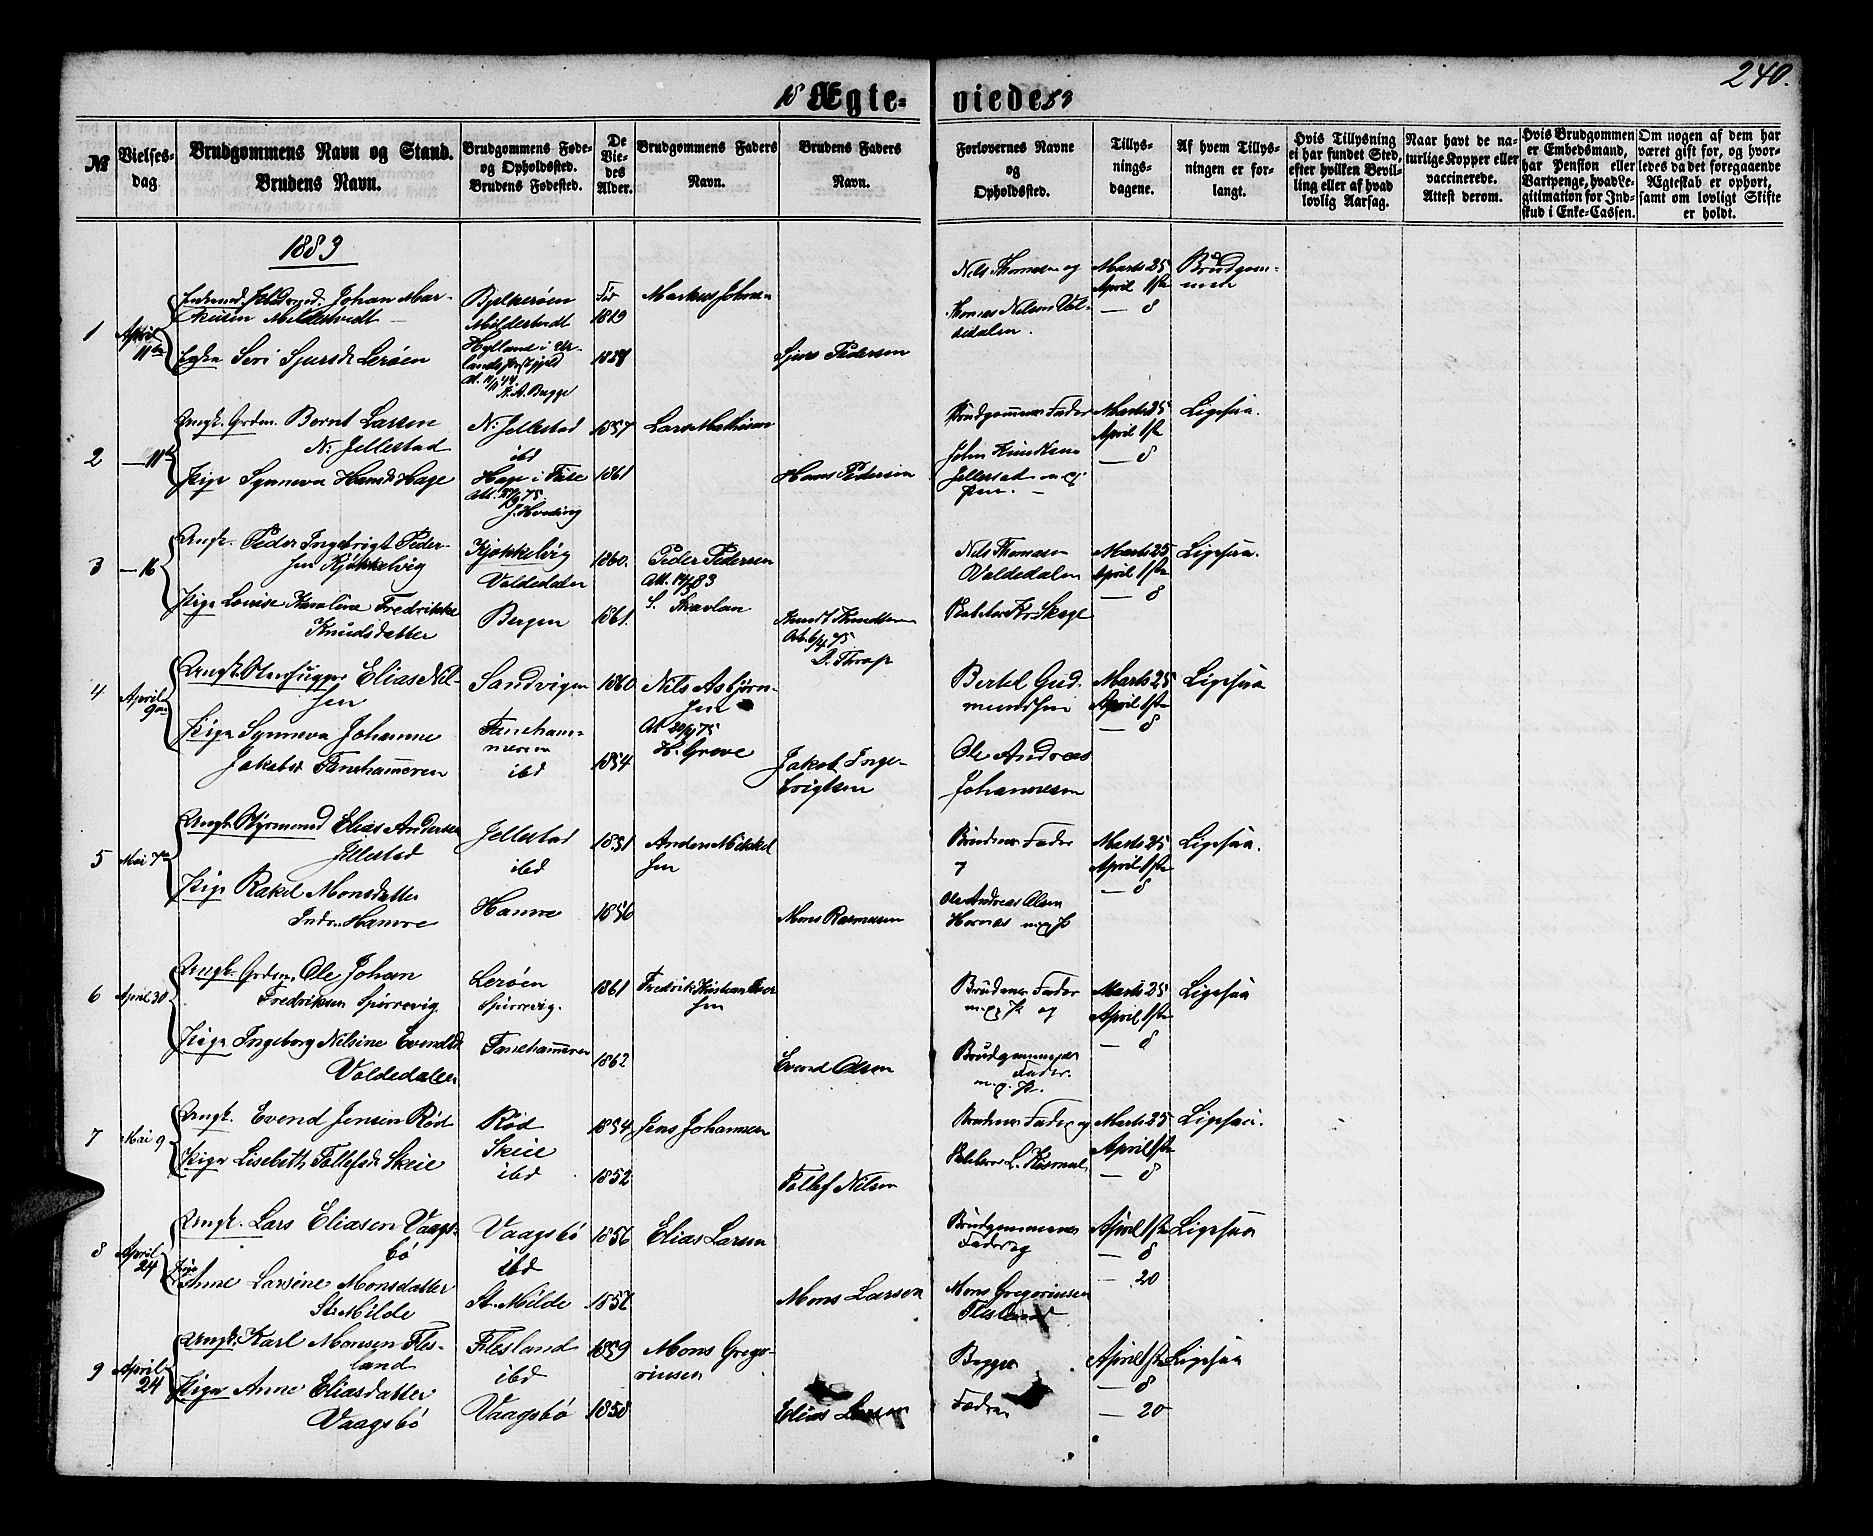 240.
18 Ægte- viede 83
№
Vielses-
dag
Brudgommens Navn og Stand.
Brudens Navn.
Brudgommens Føde-
og Opholdssted.
Brudens Fødested.
De
Vie-
des
Alder.
Brudgommens Faders
Navn.
Brudens Faders
Navn.
Forlovernes Navne
og
Opholdssted.
Tillys-
nings-
dagene.
Af hvem Tillys-
ningen er for-
langt.
Hvis Tillysning
ei har fundet Sted,
efter hvilken Bevil-
ling eller af hvad
lovlig Aarsag.
Naar havt de na-
turlige Kopper eller
vaccinerede.
Attest derom.
Hvis Brudgommen
er Embedsmand,
har Pension eller
Vartpenge, hvad Le-
gitimation for Ind-
skud i Enke-Cassen.
Om nogen af dem har
været gift før, og hvor-
ledes da det foregaaende
Ægteskab er ophørt,
samt om lovligt Skifte
er holdt.
1883
1
April
11te
Johan Mar-
kusen Mildestvedt
Enken Seri Sjursdr Lerøen
Bjelkerøen
Mildestvedt
Hylland i Ur-
lands Prstgjeld
N. A. Bugge
Fød
1819
Markus Johnsen
Sjurs Pedersen
Nils Thomsen og
Thomas Nilsen Val-
dedalen.
Marts 25
April 1ste
— 8
Brudgom-
men
2
— 11te
Ungk. Grdm. Bernt Larsen
N: Jellestad
Pige Synneva Hansdr Hage
N: Jellestad
ibd
Hage i Fuse
J. Hvoding
1857
1861
Lars Mathisen
Hans Pedersen
Brudgommens Fader
John Knudsen
Jellestad
Marts 25
April 1ste
— 8
Ligesaa.
3
— 16
Ungk. Peder Ingebrigt Peder-
sen Kjøkkelvig
Pige Louise Karoline Fredrikke
Knudsdatter
Kjøkkelvig
Valdedalen
Bergen
1860.
1861.
Peder Pedersen
S. Skavlan
Knudt Knudtsen
D. Thrap
Nils Thomsen
Valdedalen
Marts 25
April 1ste
— 8
Ligesaa.
4
April
9de
Ungk. Elias Nil-
sen
Pige Synneva Johanne
Jakobsd Fanehammeren
Sandvigen
Faneham-
meren
ibd
1860
1854
Nils Asbjørn-
sen
H. Greve
Jakob Inge-
brigtsen
Bertel Gud-
mundsen
Ole Andreas
Johannesen
Marts 25
April 1ste
— 8
Ligesaa
5
Mai 7de
Ungk. Styrmand Elias Andersen
Jellestad
Pige Rakel Monsdatter
Indre Hamre
Jellestad
ibd
Hamre
1851
1856
Anders Mikkel
sen
Mons Rasmusen
Brudens Fader
Ole Andreas Olsen
Marts 25
April 1ste
— 8
Ligesaa.
6
April 30
Ungk. Grdm. Ole Johan
Fredriksen Spirrevig
Pige Ingeborg Nilsine Evendsd
Valdedalen
Lerøen
Spirrevig.
Fanehammeren
1861
1862
Evend Olsen
Brudens Fader
og
Brudgommens
Fader.
Marts 25
April 1ste
— 8
Ligesaa
7
Mai 9
Ungk. Evend Jensen Rød
Pige Lisebeth Tollefsd Skeie
Rød
Skeie
ibd
1854
1852
Jens Johannsen
Tollef Nilsen
Brudens Fader og
Marts 25
April 1ste
— 8
Ligesaa.
8
April
24
Ungk. Lars Eliasen Vaags-
bö
Pige
Anne Larsine Monsdatter
St. Milde
Vaagsbö
ibd
St. Milde
1856
Elias Larsen
Mons Larsen
Brudgommens
Fader og
Mons Gregoriusen
Flesland
April 1ste
— 8
— 20
Ligesaa
9
April
24
Ungk. Karl Monsen Fles-
land
Pige Anne Eliasdatter
Vaagsbö
Flesland
ibd
Vaagsbö
1859
1858
Mons Grego-
riusen
Elias Larsen
Begges
Fædre
April 1ste
— 8
— 20
Ligesaa